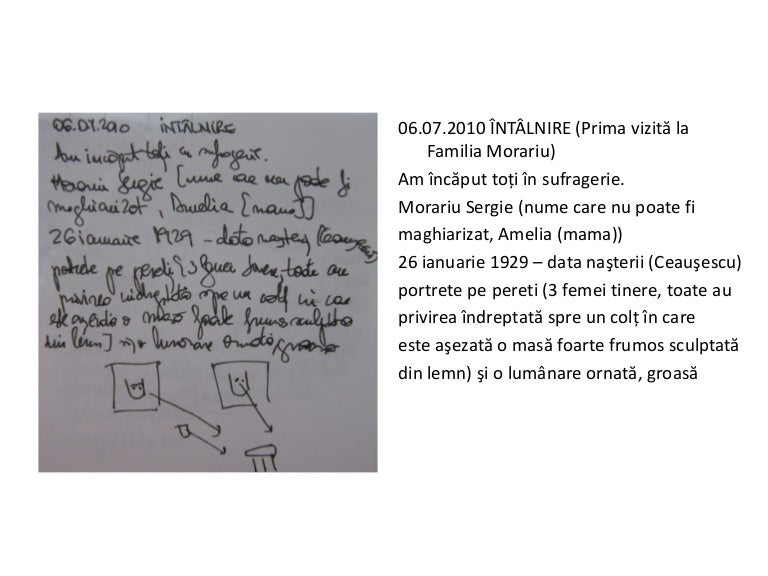 06.07.2010 ÎNTÂLNIRE
Am încăput toți în sufragerie.
Morariu Sergie [nume care nu poate fi
maghiarizat, Amelia [mama]]
26 ianuarie 1929 – data nașterii (Ceaușescu)
portrete pe pereți [3 femei tinere, toate au
privirea îndreptată spre un colț în care
este așezată o masă foarte frumos sculptată
din lemn] și o lumânare ornată, groasă
06.07.2010 ÎNTÂLNIRE (Prima vizită la
Familia Morariu)
Am încăput toți în sufragerie.
Morariu Sergie (nume care nu poate fi
maghiarizat, Amelia (mama))
26 ianuarie 1929 – data naşterii (Ceauşescu)
portrete pe pereti (3 femei tinere, toate au
privirea îndreptată spre un colț în care
este aşezată o masă foarte frumos sculptată
din lemn) şi o lumânare ornată, groasă